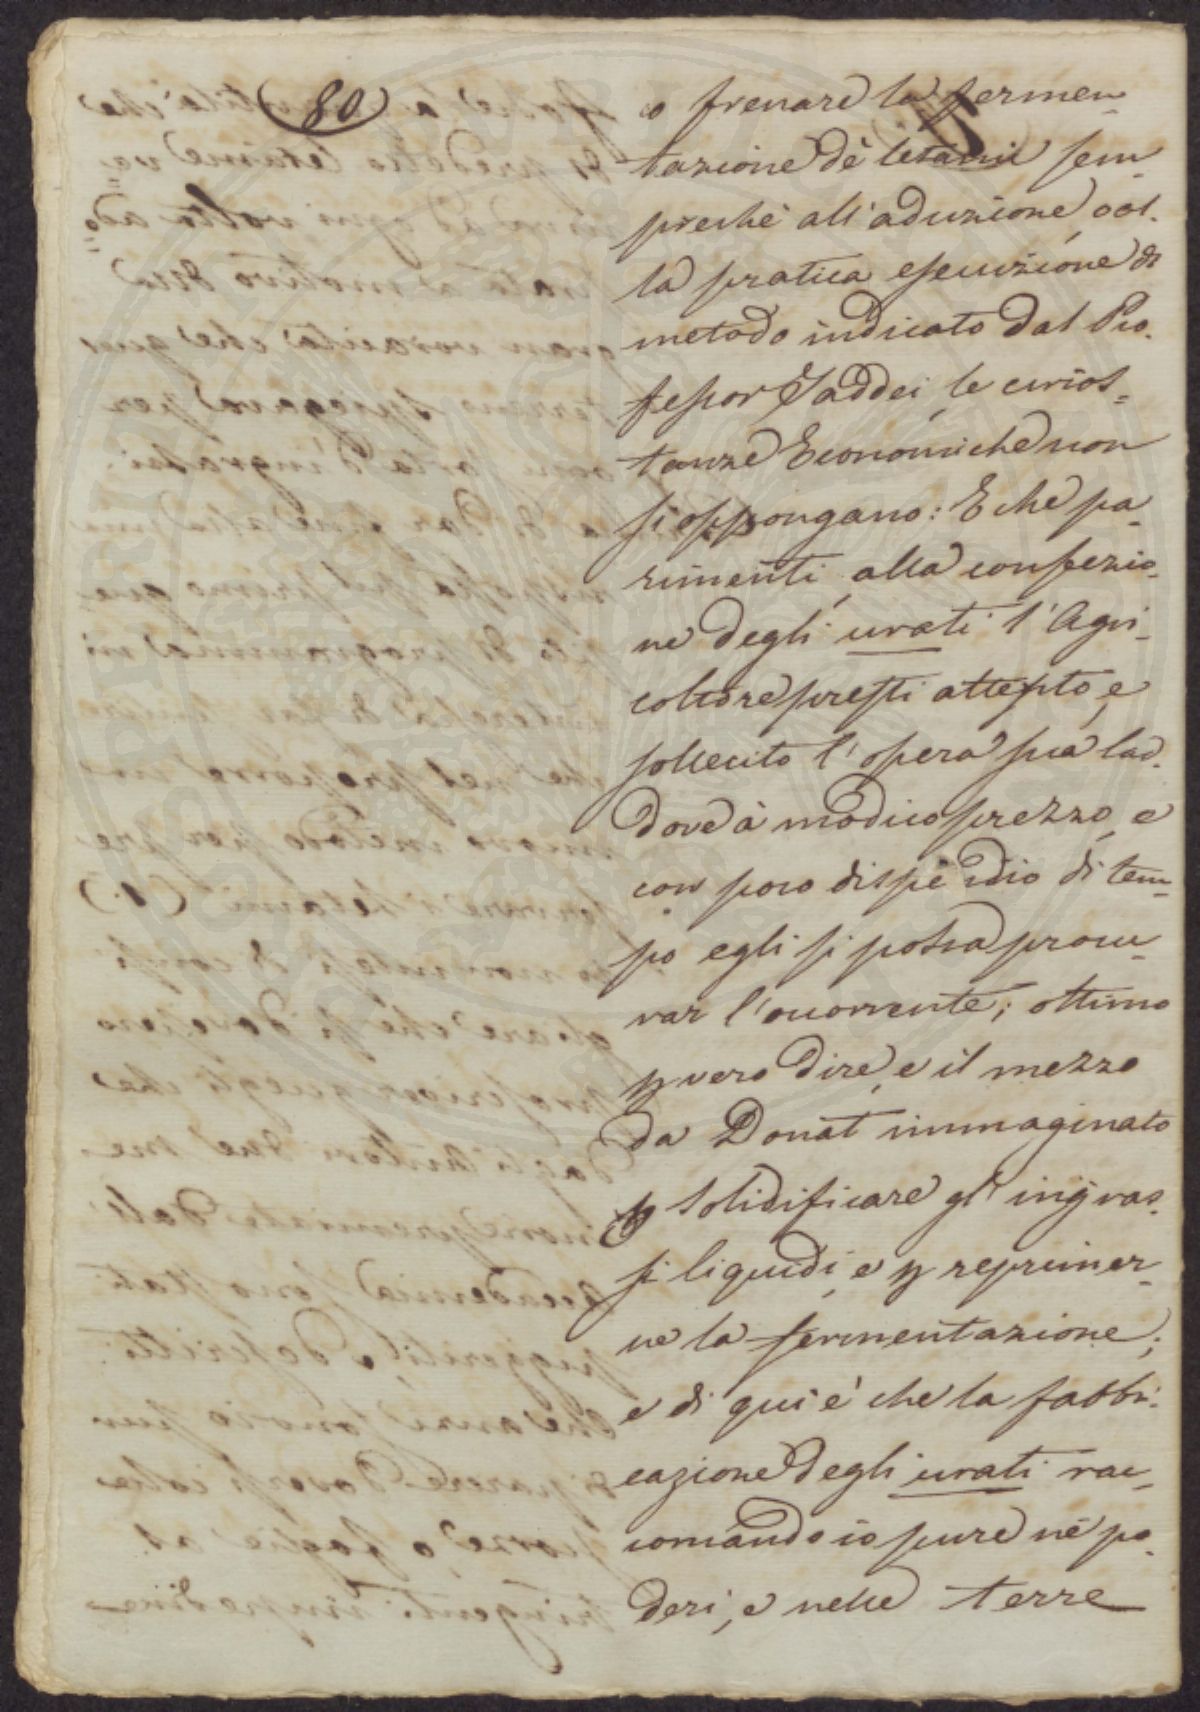 (80)
o frenare la fermen-
tazione de' letami sem-
prechè all'aduzione, ool-
la pratica esecuzione di
metodo indicato dal Pro-
fessor Taddei, le circos-
tanze Economiche non
si oppongano: E che pa-
rimenti, alla confezio-
ne degli urati l'Agri-
coltore presti attento, e
sollecito l'opera sua lad-
dove à modico prezzo, e
con poco dispendio di tem-
po egli si potrà procu-
rar l'occorrente; ottimo
p vero dire, e il mezzo
da Donat immaginato
p solidificare gl'ingras-
si liquidi, e p reprimer-
ne la fermentazione;
e di qui è che la fabbri-
cazione degli urati rac-
comando io pure nè po-
deri, e nelle terre